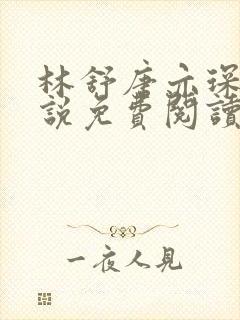 林舒唐亦琛
說免費閱讀
一夜人見